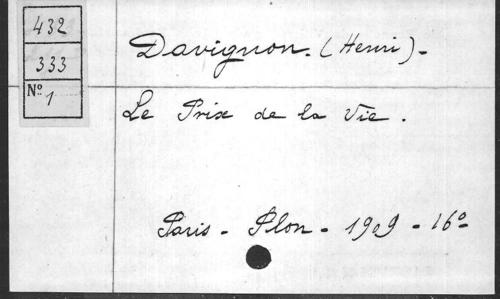 432
333
Nº 1
Davignon. (Henri) -
Le Prix de la Vie.
Paris - Plon - 1909 - 16º